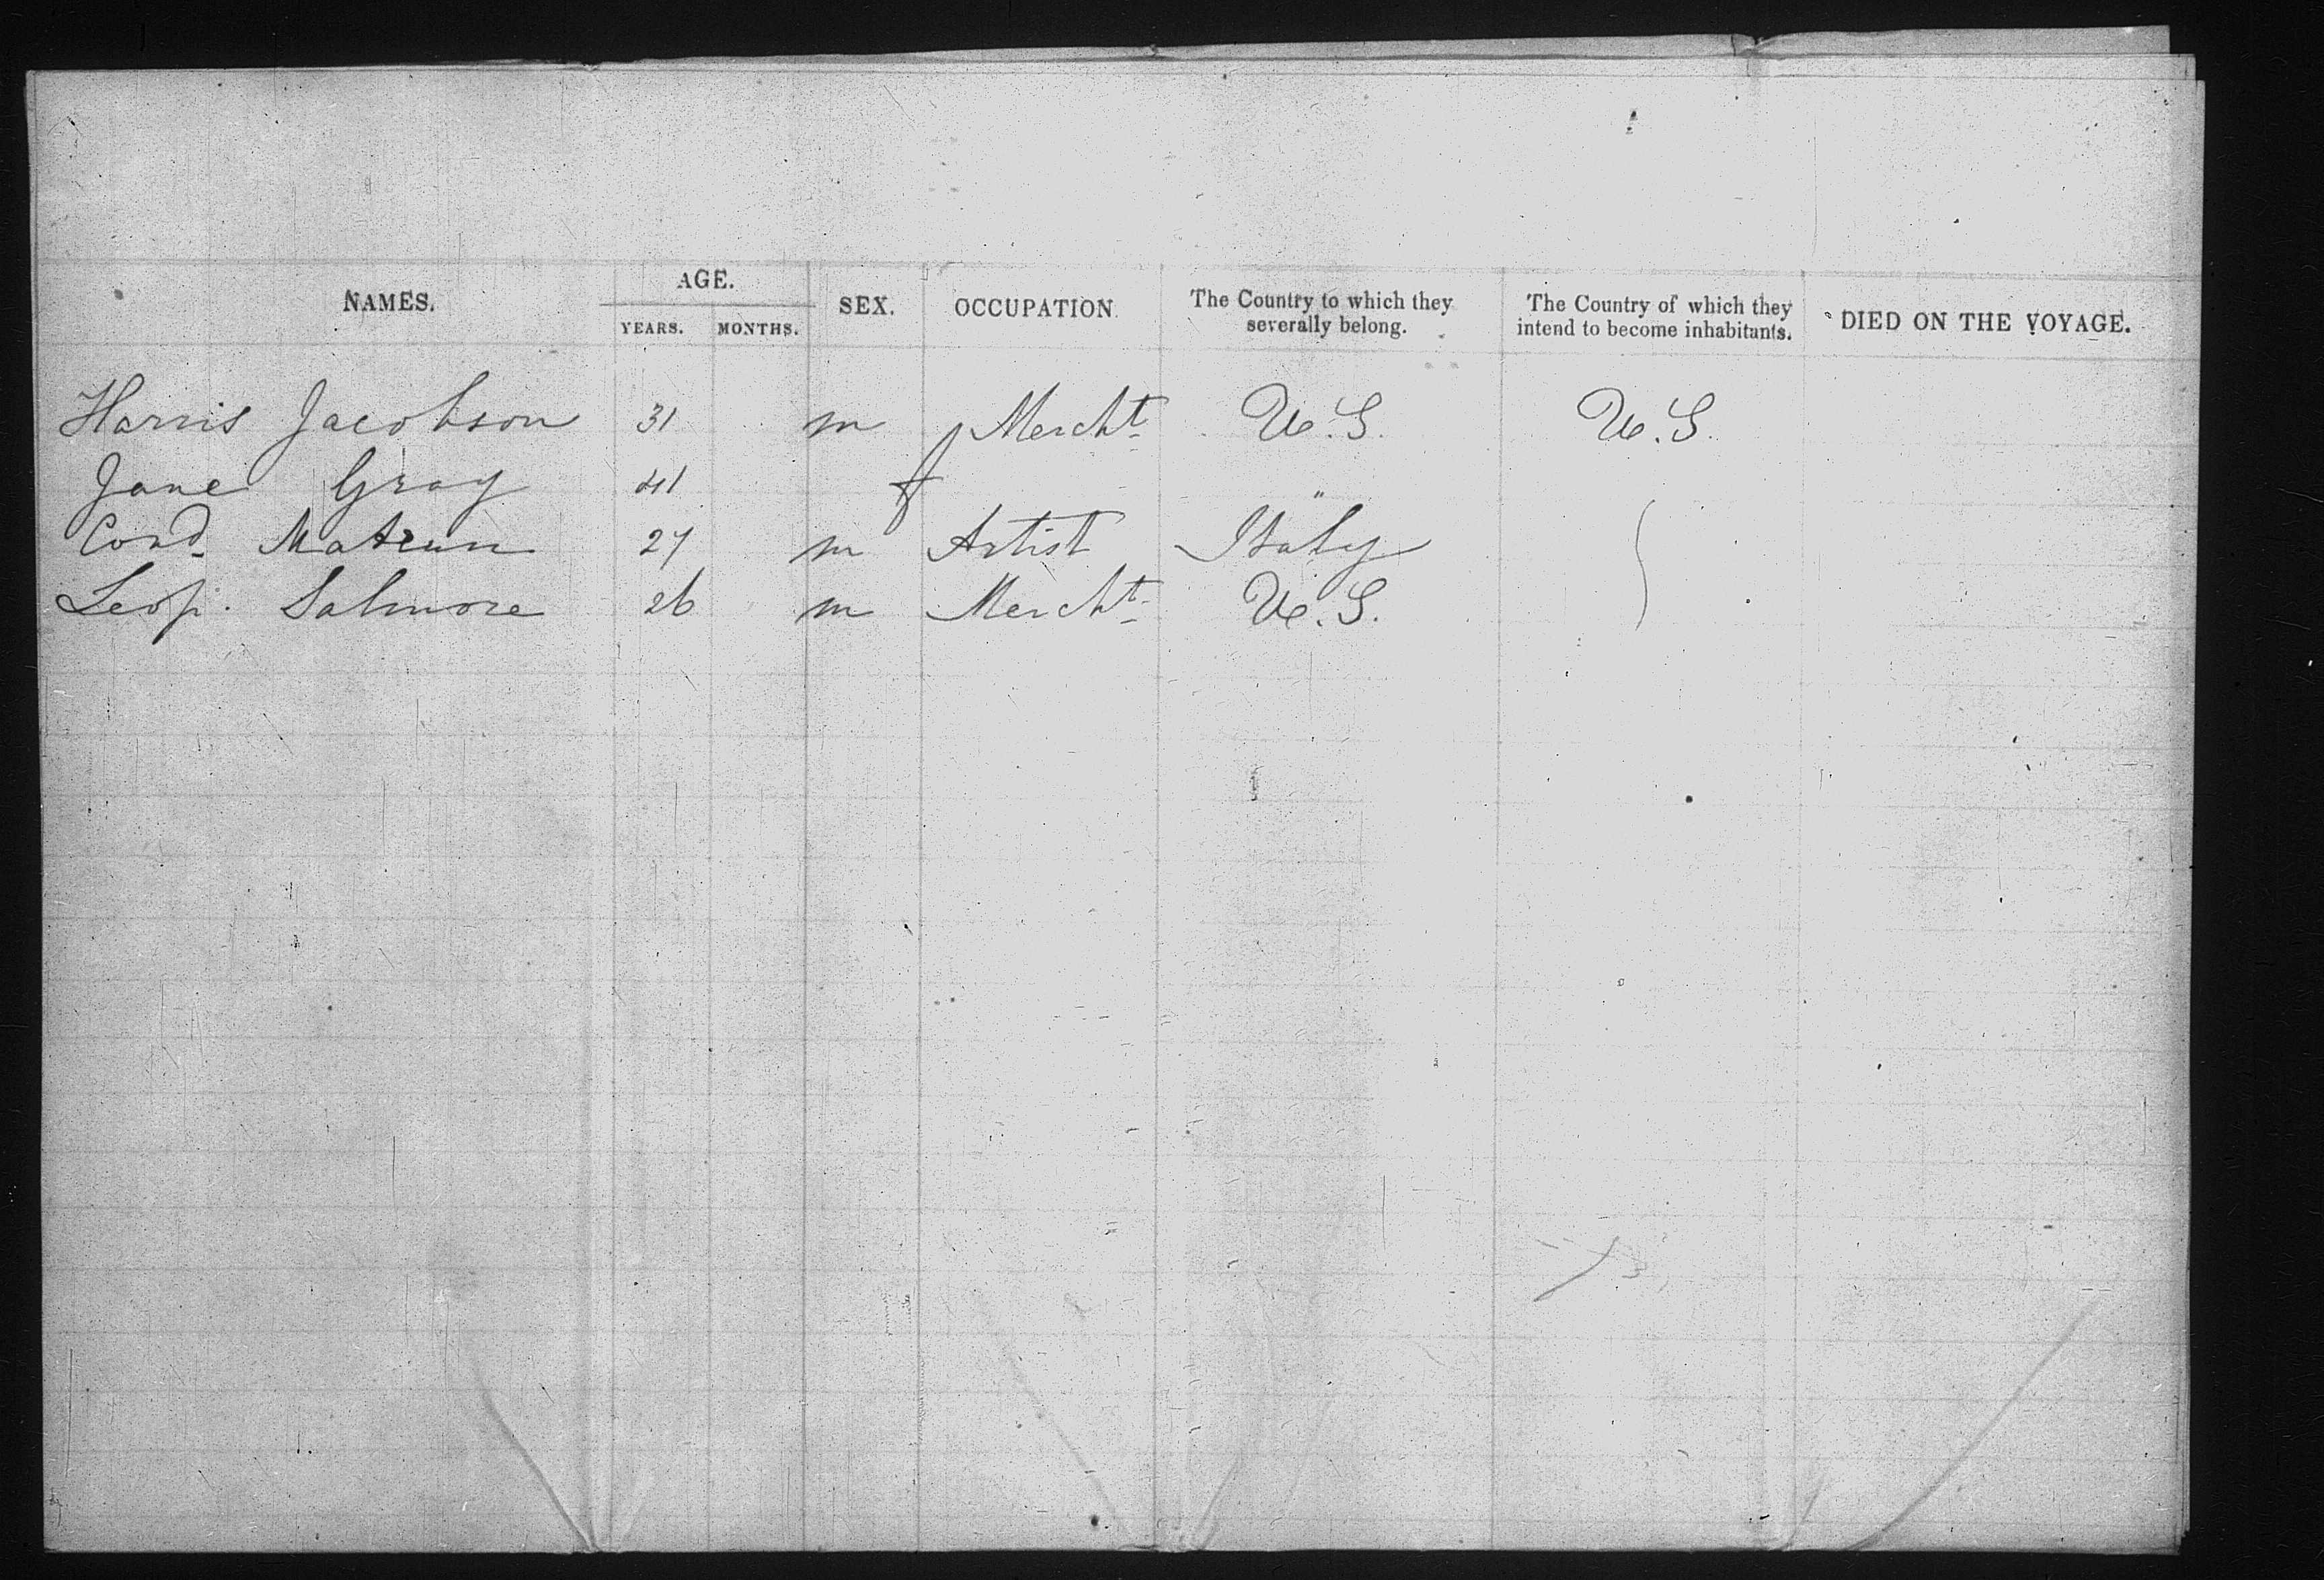 NAMES. AGE. SEX. OCCUPATION The Country to which they severally belong. The Country of which they intend to become inhabitants. DIED ON THE VOYAGE.
YEARS. MONTHS.
Harris Jacobson 31 m Mercht U.S. U.S.
Jane Gray 41 f "
27 m Artist Italy
Leop. Salmore 26 m Mercht U.S.